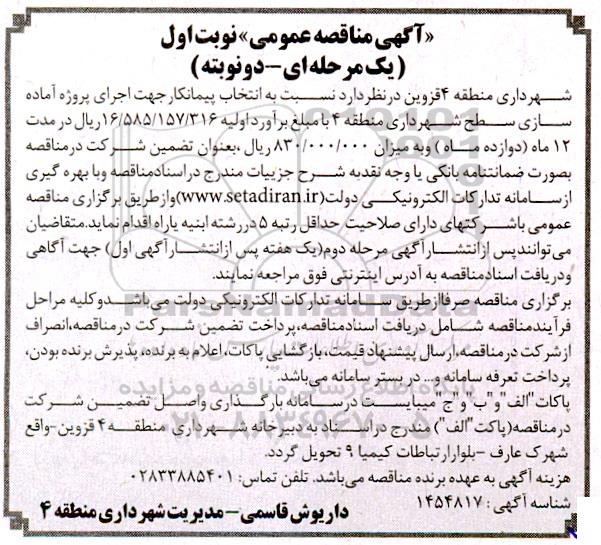 «آگهی مناقصه عمومی» نوبت اول
(یک مرحله‌ای-دو نوبته)
شهرداری منطقه ۴ قزوین در نظر دارد نسبت به انتخاب پیمانکار جهت اجرای پروژه آماده
سازی سطح شهرداری منطقه ۴ با مبلغ برآورد اولیه ۱۶/۵۸۵/۱۵۷/۳۱۶ ریال در مدت
۱۲ ماه (دوازده ماه) وبه میزان ۸۳۰/۰۰۰/۰۰۰ ریال ،بعنوان تضمین شرکت در مناقصه
بصورت ضمانتنامه بانکی یا وجه نقدبه شرح جزییات مندرج در اسناد مناقصه وبا بهره گیری
از سامانه تدارکات الکترونیکی دولت (www.setadiran.ir) واز طریق برگزاری مناقصه
عمومی با شرکتهای دارای صلاحیت حداقل رتبه ۵ در رشته ابنیه یا راه اقدام نماید.متقاضیان
می‌توانند پس از انتشار آگهی مرحله دوم (یک هفته پس از انتشار آگهی اول) جهت آگاهی
ودریافت اسناد مناقصه به آدرس اینترنتی فوق مراجعه نمایند.
برگزاری مناقصه صرفا از طریق سامانه تدارکات الکترونیکی دولت می‌باشد و کلیه مراحل
فرآیند مناقصه شامل دریافت اسناد مناقصه،پرداخت تضمین شرکت در مناقصه،انصراف
از شرکت در مناقصه،ارسال پیشنهاد قیمت، بازگشایی پاکات،اعلام به برنده، پذیرش برنده بودن،
پرداخت تعرفه سامانه و... در بستر سامانه می‌باشد.
پاکات "الف" و "ب" و "ج" میبایست در سامانه بارگذاری واصل تضمین شرکت
در مناقصه (پاکت "الف") مندرج در اسناد به دبیرخانه شهرداری منطقه ۴ قزوین-واقع
شهرک عارف -بلوار ارتباطات کیمیا ۹ تحویل گردد.
هزینه آگهی به عهده برنده مناقصه می‌باشد. تلفن تماس: ۰۲۸۳۳۸۸۵۴۰۱
شناسه آگهی : ۱۴۵۴۸۱۷
داریوش قاسمی-مدیریت شهرداری منطقه ۴
ParsNamadData
پایگاه اطلاع رسانی مناقصه و مزایده